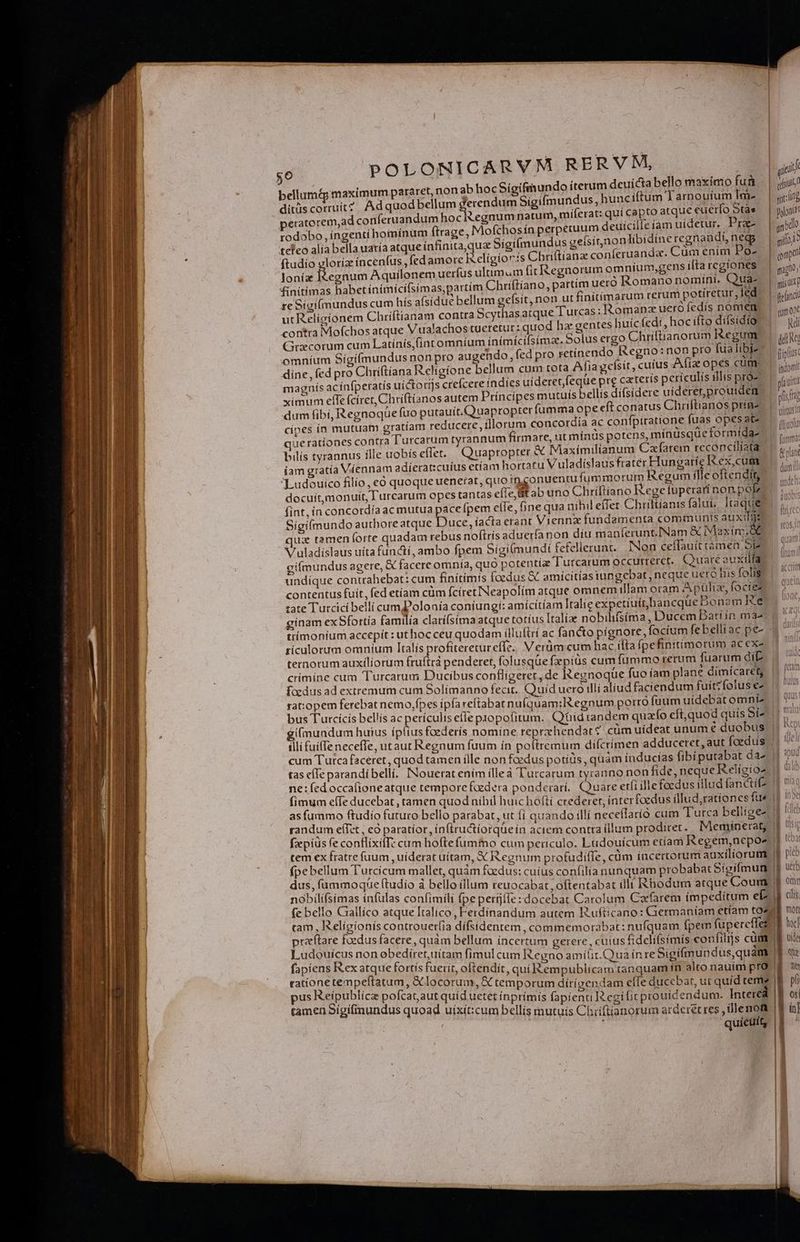 50 POLONICARVM RERVM,
bellumq́; maximum pararet, non ab hoc Sigiſmundo iterum deuicta bello maximo fun
ditùs corruit? Ad quod bellum gerendum Sigiſmundus, hunc iſtum Tarnouium Im-
peratorem, ad conſeruandum hoc Regnum natum, miſerat: qui capto atque euerſo Stàe
rodobo, ingenti hominum ſtrage, Moſchos in perpetuum deuiciſſe iam uidetur. Præ-
tereo alia bella uaria atque infinita, quæ Sigiſmundus geſsit, non libidine regnandi, neq;
ſtudio gloriæ incenſus, ſed amore Religionis Chriſtianæ conſeruandæ. Cùm enim Po-
loniæ Regnum Aquilonem uerſus ultimum ſit Regnorum omnium, gens iſta regiones
finitimas habet inimiciſsimas, partim Chriſtiano, partim uerò Romano nomini. Qua-
re Sigiſmundus cum his aſsiduè bellum geſsit, non ut finitimarum rerum potiretur, ſed
ut Religionem Chriſtianam contra Scythas atque Turcas: Romanæ uerò ſedis nomen
contra Moſchos atque Vualachos tueretur: quod hæ gentes huic ſedi, hoc iſto diſsidio
Græcorum cum Latinis, ſint omnium inimiciſsimæ. Solus ergo Chriſtianorum Regum
omnium Sigiſmundus non pro augendo, ſed pro retinendo Regno: non pro ſua libi-
dine, ſed pro Chriſtiana Religione bellum cum tota Aſia geſsit, cuius Aſiæ opes cùm
magnis ac inſperatis uictorijs creſcere indies uideret, ſeque præ cæteris periculis illis pro-
ximum eſſe ſciret, Chriſtianos autem Principes mutuis bellis diſsidere uideret, prouiden
dum ſibi, Regnoque ſuo putauit. Quapropter ſumma ope eſt conatus Chriſtianos prin-
cipes in mutuam gratiam reducere, illorum concordia ac conſpiratione ſuas opes at-
que rationes contra Turcarum tyrannum firmare, ut minùs potens, minùsque formida-
bilis tyrannus ille uobis eſſet. Quapropter & Maximilianum Cæſarem reconciliata
iam gratia Viennam adierat: cuius etiam hortatu Vuladislaus frater Hungariæ Rex, cum
Ludouico filio, eò quoque uenerat, quo in conuentu ſummorum Regum ille oſtendit,
docuit, monuit, Turcarum opes tantas eſſe, ut ab uno Chriſtiano Rege ſuperari non poſ-
ſint, in concordia ac mutua pace ſpem eſſe, ſine qua nihil eſſet Chriſtianis ſalui. Itaque
Sigiſmundo authore atque Duce, iacta erant Viennæ fundamenta communis auxilij:
quæ tamen ſorte quadam rebus noſtris aduerſa non diu manſerunt. Nam & Maxim. &
Vuladislaus uita functi, ambo ſpem Sigiſmundi fefellerunt. Non ceſſauit tamen Si-
giſmundus agere, & facere omnia, quò potentiæ Turcarum occurreret. Quare auxilia
undique contrahebat: cum finitimis fœdus & amicitias iungebat, neque uerò his ſolis
contentus fuit, ſed etiam cùm ſciret Neapolim atque omnem illam oram Apuliæ, ſocie-
tate Turcici belli cum Polonia coniungi: amicitiam Italiæ expetiuit, hancque Bonam Re-
ginam ex Sfortia familia clariſsima atque totius Italiæ nobiliſsima, Ducem Bari in ma-
trimonium accepit: ut hoc ceu quodam illuſtri ac ſancto pignore, ſocium ſe belli ac pe-
riculorum omnium Italis profiteretur eſſe. Verùm cum hac iſta ſpe finitimorum ac ex-
ternorum auxiliorum fruſtrà penderet, ſolusque ſæpiùs cum ſummo rerum ſuarum diſ-
crimine cum Turcarum Ducibus confligeret, de Regnoque ſuo iam planè dimicaret,
fœdus ad extremum cum Solimanno fecit. Quid uerò illi aliud faciendum fuit? ſolus e-
rat: opem ferebat nemo, ſpes ipſa reſtabat nuſquam: Regnum porrò ſuum uidebat omni-
bus Turcicis bellis ac periculis eſſe propoſitum. Quid tandem quæſo eſt, quod quis Si-
giſmundum huius ipſius fœderis nomine reprehendat? cùm uideat unum è duobus
illi fuiſſe neceſſe, ut aut Regnum ſuum in poſtremum diſcrimen adduceret, aut fœdus
cum Turca faceret, quod tamen ille non fœdus potiùs, quàm inducias ſibi putabat da-
tas eſſe parandi belli. Nouerat enim ille à Turcarum tyranno non fide, neque Religio-
ne: ſed occaſione atque tempore fœdera ponderari. Quare etſi ille fœdus illud ſanctiſ-
ſimum eſſe ducebat, tamen quod nihil huic hoſti crederet, inter fœdus illud, rationes ſu-
as ſummo ſtudio futuro bello parabat, ut ſi quando illi neceſſariò cum Turca bellige-
randum eſſet, eò paratior, inſtructiorque in aciem contra illum prodiret. Meminerat,
ſæpiùs ſe conflixiſſe cum hoſte ſummo cum periculo. Ludouicum etiam Regem, nepo-
tem ex fratre ſuum, uiderat uitam, & Regnum profudiſſe, cùm incertorum auxiliorum
ſpe bellum Turcicum mallet, quàm fœdus: cuius conſilia nunquam probabat Sigiſmun
dus, ſummoque ſtudio à bello illum reuocabat, oſtentabat illi Rhodum atque Coum
nobiliſsimas inſulas conſimili ſpe perijſſe: docebat Carolum Cæſarem impeditum eſ-
ſe bello Gallico atque Italico, Ferdinandum autem Ruſticano: Germaniam etiam to-
tam, Religionis controuerſia diſsidentem, commemorabat: nuſquam ſpem ſupereſſe:
præſtare fœdus facere, quàm bellum incertum gerere, cuius fideliſsimis conſilijs cùm
Ludouicus non obediret, uitam ſimul cum Regno amiſit. Qua in re Sigiſmundus, quàm
ſapiens Rex atque fortis fuerit, oſtendit, qui Rempublicam tanquam in alto nauim pro
ratione tempeſtatum, & locorum, & temporum dirigendam eſſe ducebat, ut quid tem-
pus Reipublicæ poſcat, aut quid uetet inprimis ſapienti Regi ſit prouidendum. Intereà
tamen Sigiſmundus quoad uixit: cum bellis mutuis Chriſtianorum arderet res, ille non
quieuit,